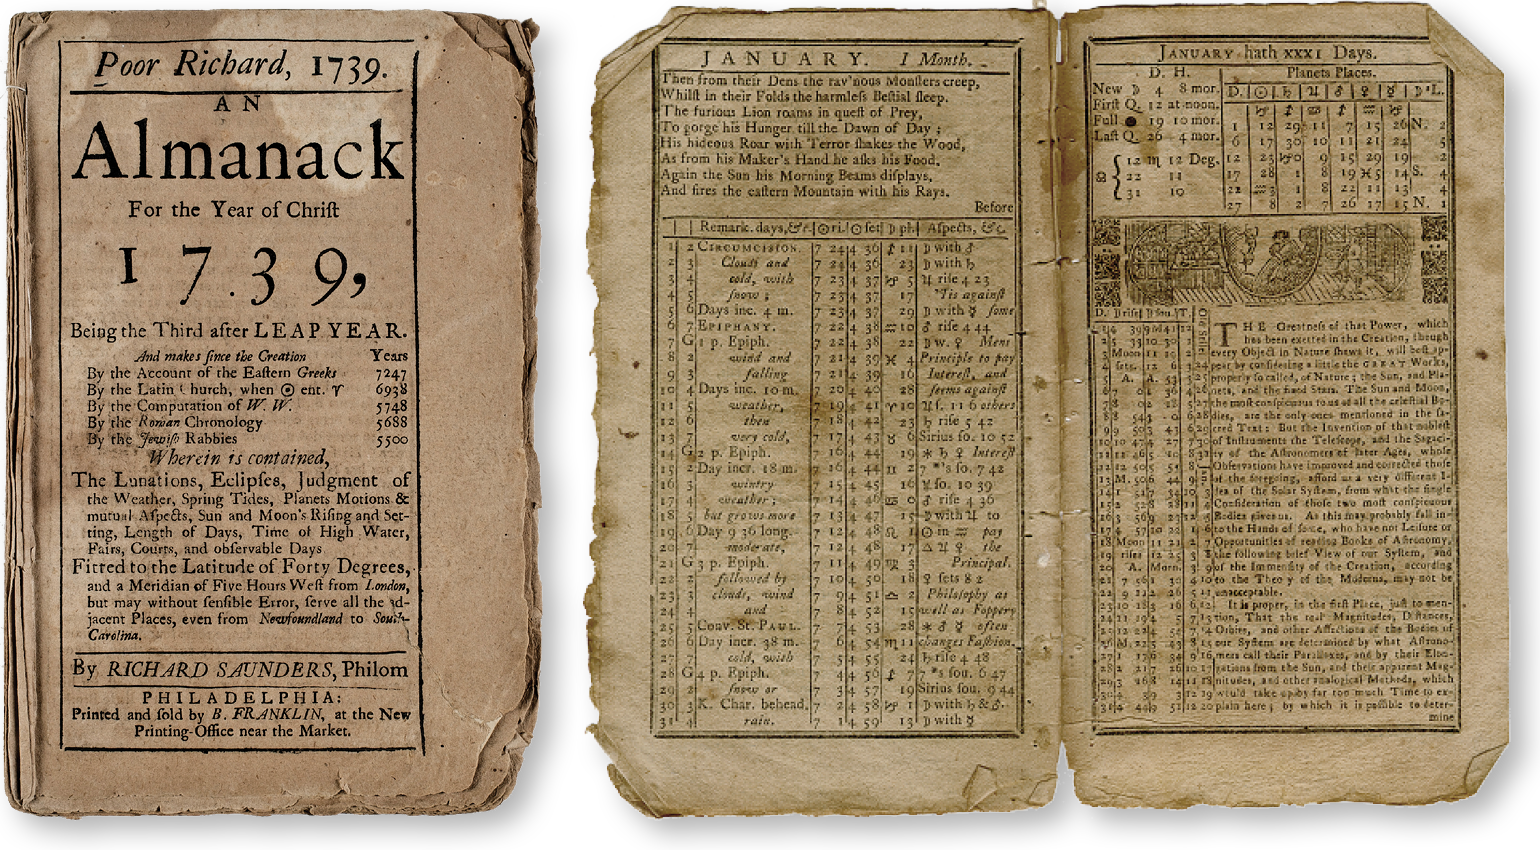 Poor Richard, 1739.
AN
Almanack
For the Year of Chriſt
1739,
Being the Third after LEAP YEAR.
And makes ſince the Creation Years
By the Account of the Eaſtern Greeks 7247
By the Latin Church, when ☉ ent. ♈ 6938
By the Computation of W. W. 5748
By the Roman Chronology 5688
By the Jewiſh Rabbies 5500
Wherein is contained,
The Lunations, Eclipſes, Judgment of
the Weather, Spring Tides, Planets Motions &
mutual Aſpects, Sun and Moon's Riſing and Set-
ting, Length of Days, Time of High Water,
Fairs, Courts, and obſervable Days
Fitted to the Latitude of Forty Degrees,
and a Meridian of Five Hours Weſt from London,
but may without ſenſible Error, ſerve all the ad-
jacent Places, even from Newfoundland to South-
Carolina.
By RICHARD SAUNDERS, Philom
PHILADELPHIA:
Printed and ſold by B. FRANKLIN, at the New
Printing-Office near the Market.
JANUARY. I Month.
Then from their Dens the rav'nous Monſters creep,
Whilſt in their Folds the harmleſs Beſtial ſleep.
The furious Lion roams in queſt of Prey,
To gorge his Hunger till the Dawn of Day;
His hideous Roar with Terror ſhakes the Wood,
As from his Maker's Hand he aſks his Food.
Again the Sun his Morning Beams diſplays,
And fires the eaſtern Mountain with his Rays.
Before
Remark. days, &c. ☉ ri. ☉ ſet ☽ pl. Aſpects, &c.
1 2 CIRCUMCISION. 7 24 4 36 ♐ 11 ☽ with ♂
2 3 Clouds and 7 24 4 36 23 ☽ with ♄
3 4 cold, with 7 23 4 37 ♑ 5 ♃ riſe 4 23
4 5 ſnow; 7 23 4 37 17 'Tis againſt
5 6 Days inc. 4 m. 7 23 4 37 29 ☽ with ☿ ſome
6 7 EPIPHANY. 7 22 4 38 ♒ 10 ♂ riſe 4 44
7 G 1 p. Epiph. 7 22 4 38 22 ☽ w. ♀ Mens
8 2 wind and 7 21 4 39 ♓ 4 Principle to pay
9 3 falling 7 21 4 39 16 Intereſt, and
10 4 Days inc. 10 m. 7 20 4 40 28 ſeems againſt
11 5 weather, 7 19 4 41 ♈ 10 ♃ ſ. 11 6 others
12 6 then 7 18 4 42 23 ♄ riſe 5 42
13 7 very cold, 7 17 4 43 ♉ 6 Sirius ſo. 10 52
14 G 2 p. Epiph. 7 16 4 44 19 ✶ ♄ ♀ Intereſt
15 2 Day incr. 18 m. 7 16 4 44 ♊ 2 7 *'s ſo. 7 42
16 3 wintry 7 15 4 45 16 ♉ ſo. 10 39
17 4 weather; 7 14 4 46 ♋ 0 ♂ riſe 4 36
18 5 but grows more 7 13 4 47 15 ☽ with ♃ to
19 6 Day 9 36 long. 7 12 4 48 ♌ 1 ☉ in ♒ pay
20 7 moderate, 7 12 4 48 17 △ ♃ ♀ the
21 G 3 p. Epiph. 7 11 4 49 ♍ 3 Principal.
22 2 followed by 7 10 4 50 18 ♀ ſets 8 2
23 3 clouds, wind 7 9 4 51 ♎ 2 Philoſophy as
24 4 and 7 8 4 52 15 well as Foppery
25 5 Conv. St. PAUL. 7 7 4 53 28 ✶ ♂ ☿ often
26 6 Day incr. 38 m. 7 6 4 54 ♏ 11 changes Faſhion.
27 7 cold, with 7 5 4 55 24 ♄ riſe 4 48
28 G 4 p. Epiph. 7 4 4 56 ♐ 7 7 *'s ſou. 6 47
29 2 ſnow or 7 3 4 57 19 Sirius ſou. 9 44
30 3 K. Char. behead. 7 2 4 58 ♑ 1 ☽ with ♄ & ♂.
31 4 rain. 7 1 4 59 13 ☽ with ☿
JANUARY hath XXXI Days.
D. H.
New ☽ 4 8 mor.
Firſt Q. 12 at noon.
Full ● 19 10 mor.
Laſt Q. 26 4 mor.
☊ 12 ♏ 12 Deg.
22 11
31 10
Planets Places.
D. ☉ ♄ ♃ ♂ ♀ ☿ ☽'s L.
♑ ♐ ♋ ♐ ♒ ♑
1 12 29 11 7 15 26 N. 2
6 17 30 10 11 21 24 5
12 23 ♑0 9 15 29 19 2
17 28 1 8 19 ♓5 14 S. 4
22 ♒3 1 8 22 11 13 4
27 8 2 7 26 17 15 N. 1
D. ☽ riſe ☽ ſou. T.
THE Greatneſs of that Power, which
has been exerted in the Creation, though
every Object in Nature ſhews it, will beſt ap-
pear by conſidering a little the GREAT Works,
properly ſo called, of Nature; the Sun, and Pla-
nets, and the fixed Stars. The Sun and Moon,
the moſt conſpicuous to us of all the celeſtial Bo-
dies, are the only ones mentioned in the ſa-
cred Text: But the Invention of that nobleſt
of Inſtruments the Teleſcope, and the Sagaci-
ty of the Aſtronomers of later Ages, whoſe
Obſervations have improved and corrected thoſe
of the foregoing, afford us a very different I-
dea of the Solar Syſtem, from what the ſingle
Conſideration of thoſe two moſt conſpicuous
Bodies gives us. As this may probably fall in-
to the Hands of ſome, who have not Leiſure or
Opportunities of reading Books of Aſtronomy,
the following brief View of our Syſtem, and
of the Immenſity of the Creation, according
to the Theory of the Moderns, may not be
unacceptable.
It is proper, in the firſt Place, juſt to men-
tion, That the real Magnitudes, Diſtances,
Orbits, and other Affections of the Bodies of
our Syſtem are determined by what Aſtrono-
mers call their Parallaxes, and by their Elon-
gations from the Sun, and their apparent Mag-
nitudes, and other analogical Methods, which
would take up by far too much Time to ex-
plain here; by which it is poſſible to deter-
mine